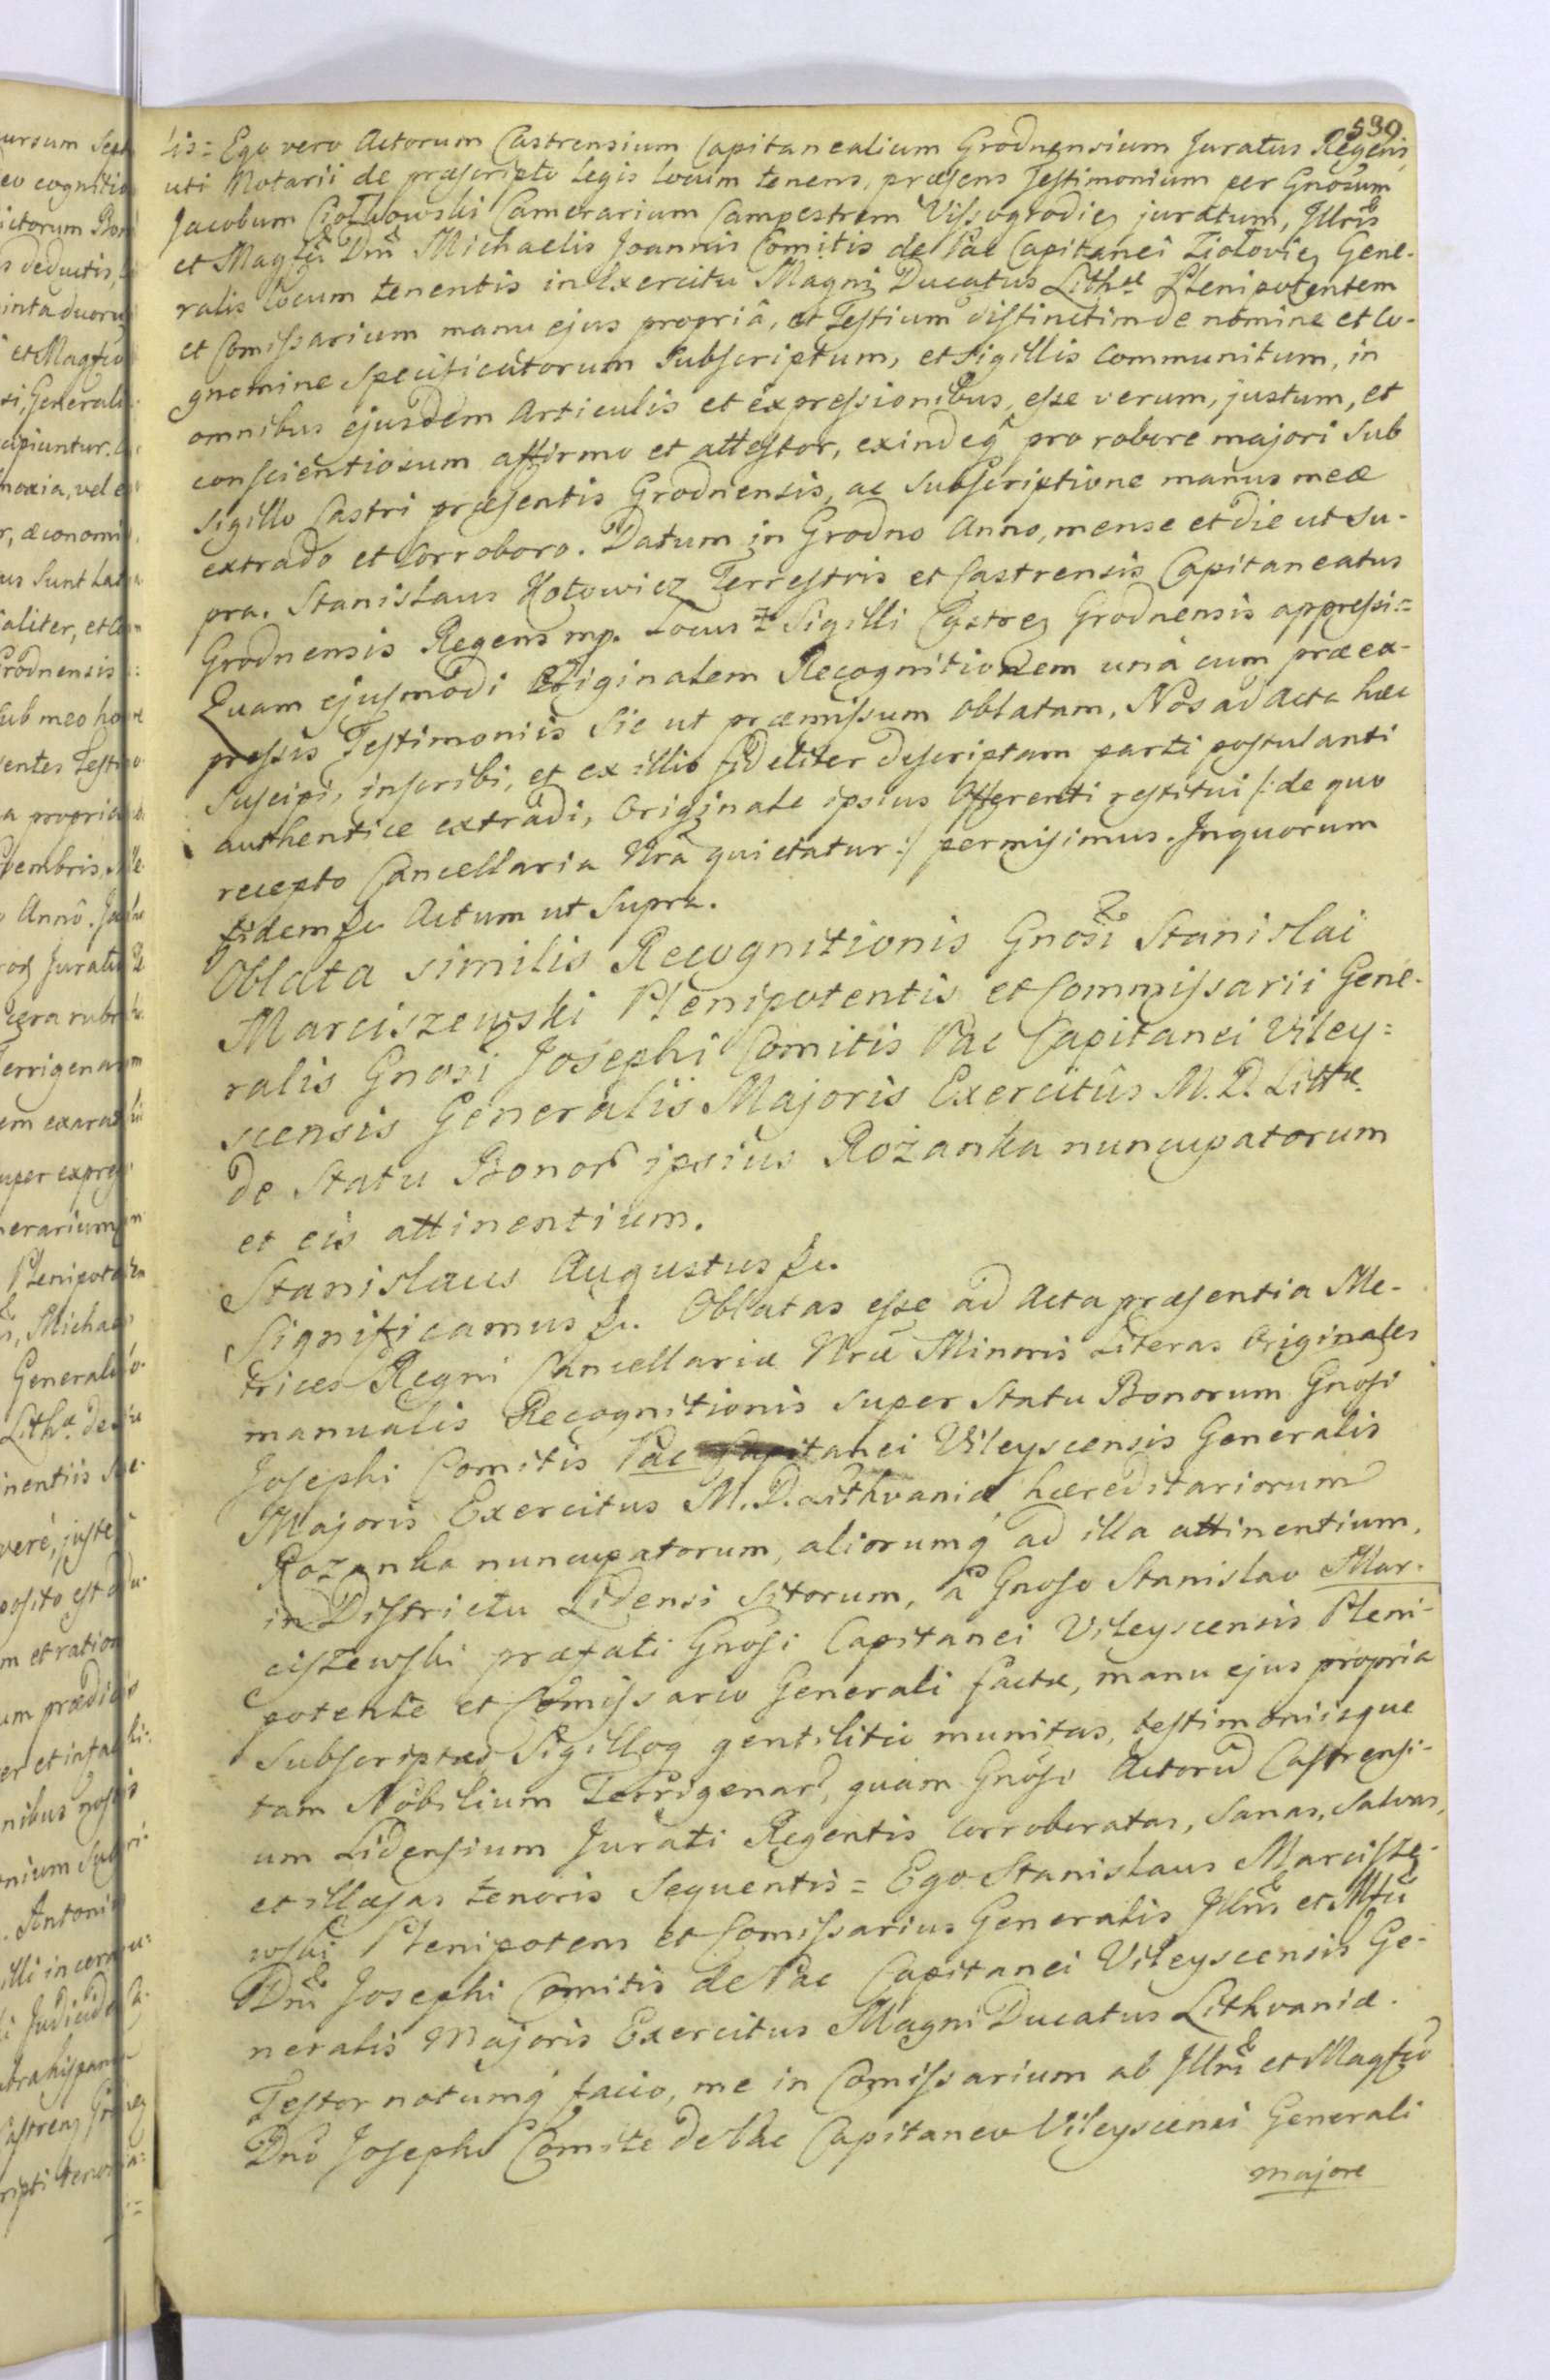 539
lis = Ego vero Actorum Castrensium Capitanealium Grodnensium Juratus Regens,
uti Notarii de præscripto Legis locum tenens, præsens Testimonium per Gnosum
Jacobum Ciołkowski Camerarium Campestrem Vissogrodień juratum, Illris
et Magfci Dni Michaelis Joannis Comitis de Pac Capitanei Ziołovień Gene-
ralis locum tenentis in Exercitu Magni Ducatus Lithæ Plenipotentem
et Comissarium manu ejus propriâ, et Testium distinctim de nomine et co-
gnomine specificatorum subscriptum, et sigillis communitum, in
omnibus ejusdem Articulis et expressionibus, esse verum, justum, et
conscientiosum affirmo et attestor, exindeq pro robore majori sub
sigillo Castri præsentis Grodnensis, ac subscriptione manus meæ
extrado et corroboro. Datum in Grodno Anno, mense et die ut su-
pra. Stanislaus Hołowicz Terrestris et Castrensis Capitaneatus
Grodnensis Regens mp. Locus Sigilli Castreń Grodnensis appressi =
Quam ejusmodi Originalem Recognitionem unà cum præex-
pressis Testimoniis sic ut præmissum oblatam, Nos ad Acta hæc
suscipi, inscribi, et ex illis fideliter descriptam parti postulanti
authentice extradi, Originale ipsius Offerenti restitui /: de quo
recepto Cancellaria Nra quietatur :/ permisimus. In quorum
fidem &c. Actum ut supra.
Oblata similis Recognitionis Gnosi Stanislai
Marciszewski Plenipotentis et Commissarii Gene-
ralis Gnosi Josephi Comitis Pac Capitanei Viley=
scensis Generalis Majoris Exercitûs M. D. Littæ
de Statu Bonor ipsius Rożanka nuncupatorum
et eis attinentium.
Stanislaus Augustus &c.
Significamus &c. Oblatas esse ad Acta præsentia Me-
trices Regni Cancellariæ Nræ Minoris Literas Originales
manualis Recognitionis super Statu Bonorum Gnosi
Josephi Comitis Pac Capitanei Vileyscensis Generalis
Majoris Exercitus M. D. Lithvaniæ hæreditariorum
Rozanka nuncupatorum, aliorumq ad illa attinentium,
in Districtu Lidensi sitorum, à Gnoso Stanislao Mar-
ciszewski præfati Gnosi Capitanei Vileyscensis Pleni-
potente et Comissario Generali factæ, manu ejus propria
subscriptas, Sigilloq gentilitio munitas, testimoniisque
tam Nobilium Terrigenar, quàm Gnosi Actorũ Castrensi-
um Lidensium Jurati Regentis corroboratas, sanas, salvas,
et illæsas tenoris sequentis = Ego Stanislaus Marcisze-
wski Plenipotens et Comissarius Generalis Illris et Mfci
Dni Josephi Comitis de Pac Capitanei Vileyscensis Ge-
neralis Majoris Exercitus Magni Ducatus Lithvaniæ.
Testor notumq facio, me in Comissarium ab Illri et Magfco
Dno Josepho Comite de Pac Capitaneo Vileyscensi Generali
majore